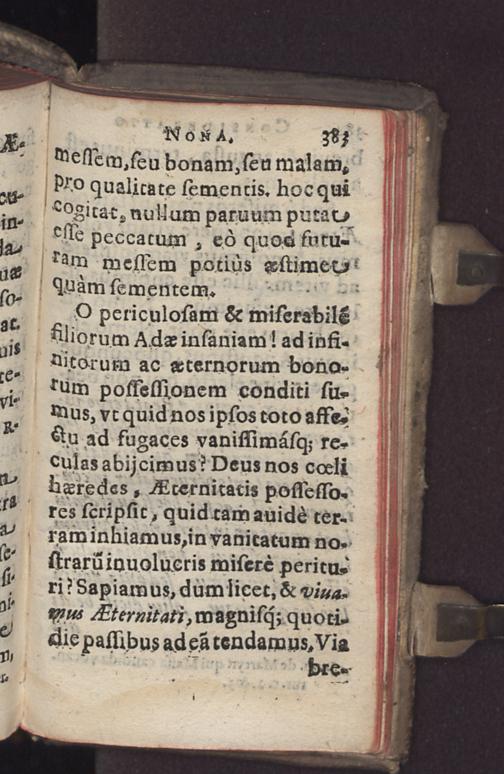 NONA. 383
messem, seu bonam, seu malam,
pro qualitate sementis. hoc qui
cogitat, nullum paruum putat
esse peccatum, eò quod futu-
ram messem potiùs æstimet
quàm sementem.
O periculosam & miserabilē
filiorum Adæ insaniam! ad infi-
nitorum ac æternorum bono-
rum possessionem conditi su-
mus, vt quid nos ipsos toto affe-
ctu ad fugaces vanissimásq; re-
culas abijcimus? Deus nos cœli
hæredes, Æternitatis possesso-
res scripsit, quid tam auidè ter-
ram inhiamus, in vanitatum no-
strarū inuolucris miserè peritu-
ri? Sapiamus, dum licet, & viua-
mus Æternitati, magnisq́; quoti-
die passibus ad eā tendamus. Via
bre-